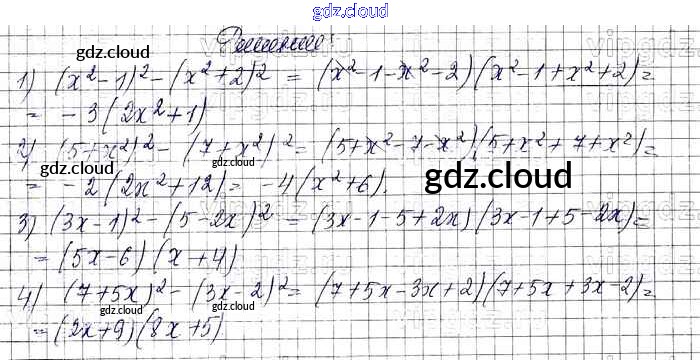 gdz.cloud
Решение:
gdz.cloud
1) (x² - 1)² - (x² + 2)² = (x² - 1 - x² - 2)(x² - 1 + x² + 2) =
= -3(2x² + 1)
2) (5 + x²)² - (7 + x²)² = (5 + x² - 7 - x²)(5 + x² + 7 + x²) =
gdz.cloud
gdz.cloud
= -2(2x² + 12) = -4(x² + 6).
gdz.cloud
3) (3x - 1)² - (5 - 2x)² = (3x - 1 - 5 + 2x)(3x - 1 + 5 - 2x) =
= (5x - 6)(x + 4)
gdz.cloud
4) (7 + 5x)² - (3x - 2)² = (7 + 5x - 3x + 2)(7 + 5x + 3x - 2) =
gdz.cloud
gdz.cloud
= (2x + 9)(8x + 5)